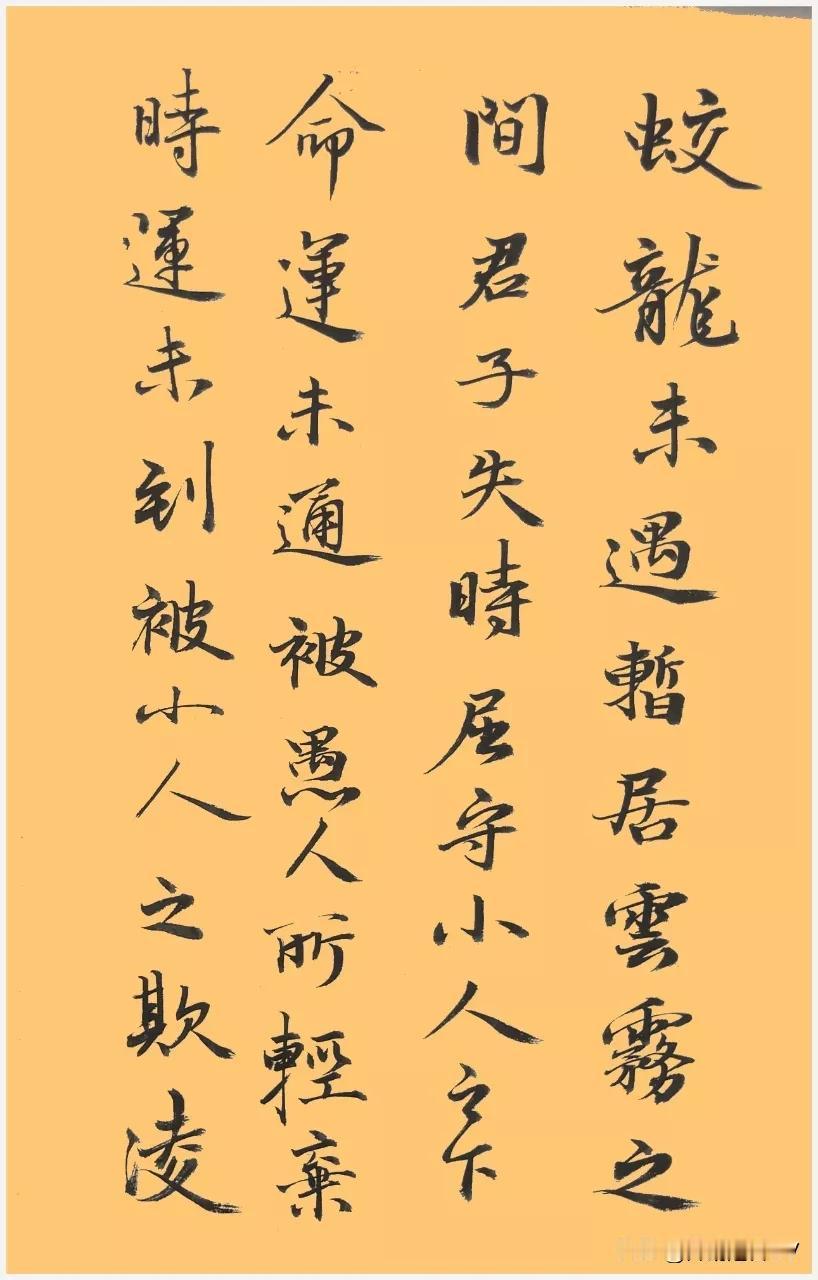 蛟龍未遇暫居雲霧之
間君子失時屈守小人之下
命運未通被愚人所輕棄
時運未到被小人之欺凌